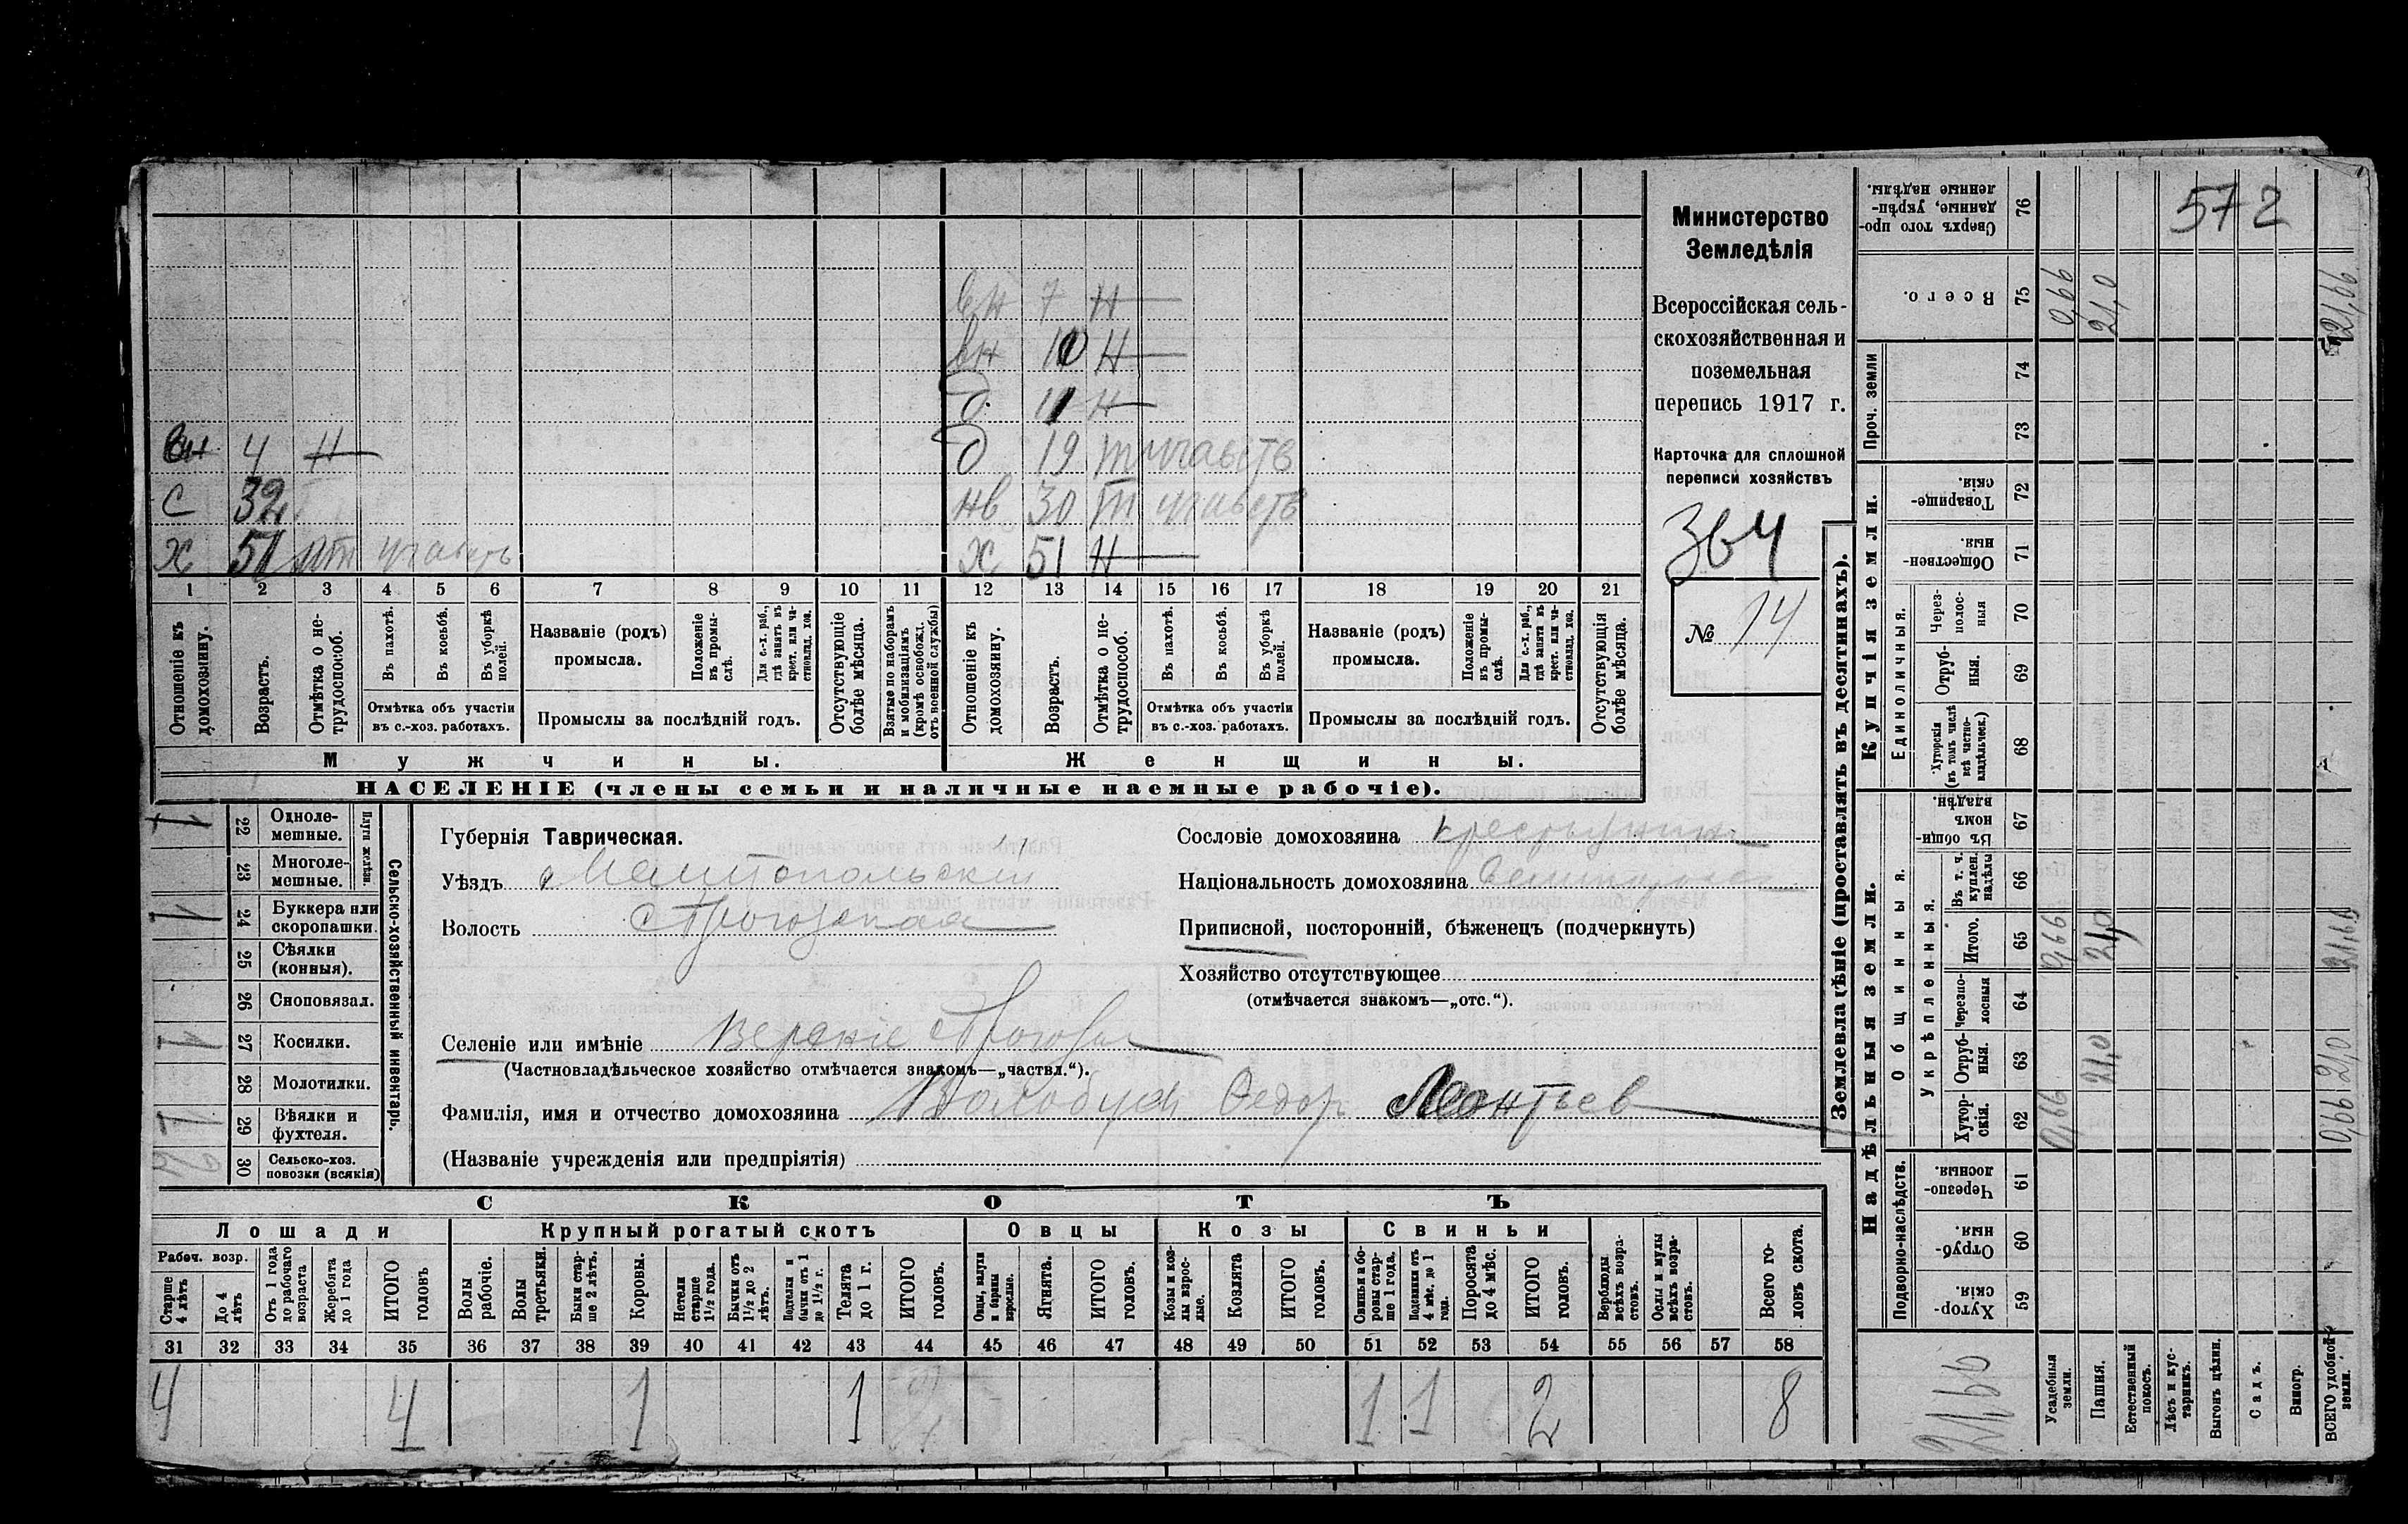 572
Министерство
Земледѣлія
Всероссійская сель-
скохозяйственная и
поземельная
перепись 1917 г.
Карточка для сплошной
переписи хозяйствъ
364
№ 14
вн 7 н
вн 10 н
д 11 н
вн 4 н д 19
с 32 нв 30
х 51 х 51 н
1 2 3 4 5 6 7 8 9 10 11 12 13 14 15 16 17 18 19 20 21
Отношеніе къ домохозяину.
Возрастъ.
Отмѣтка о не-трудоспособ.
Въ пахотѣ.
Въ косьбѣ.
Въ уборкѣ полей.
Отмѣтка объ участіи
въ с.-хоз. работахъ.
Названіе (родъ)
промысла.
Положеніе въ промы-слѣ.
Для с.-х. раб., гдѣ занятъ въ крест. или ча-стновлад. хоз.
Промыслы за послѣдній годъ.
Отсутствующіе болѣе мѣсяца.
Взятые по наборамъ и мобилизаціямъ (кромѣ освобожд. отъ военной службы)
Отношеніе къ домохозяину.
Возрастъ.
Отмѣтка о не-трудоспособ.
Въ пахотѣ.
Въ косьбѣ.
Въ уборкѣ полей.
Отмѣтка объ участіи
въ с.-хоз. работахъ.
Названіе (родъ)
промысла.
Положеніе въ промы-слѣ.
Для с.-х. раб., гдѣ занята въ крест. или ча-стновлад. хоз.
Промыслы за послѣдній годъ.
Отсутствующія болѣе мѣсяца.
Мужчины. Женщины.
НАСЕЛЕНІЕ (члены семьи и наличные наемные рабочіе).
Сельско-хозяйственный инвентарь.
Плуги желѣзн.
1 22 Одноле-мешные.
23 Многоле-мешные.
1 24 Буккера или скоропашки.
25 Сѣялки (конныя).
26 Сноповязал.
1 27 Косилки.
28 Молотилки.
1 29 Вѣялки и фухтеля.
30 Сельско-хоз. повозки (всякія)
Губернія Таврическая.
Уѣздъ Мелитопольскій
Волость
Селеніе или имѣніе Верхніе
(Частновладѣльческое хозяйство отмѣчается знакомъ—„частвл.“).
Фамилія, имя и отчество домохозяина Федор Леонтьев
(Названіе учрежденія или предпріятія)
Сословіе домохозяина
Національность домохозяина
Приписной, посторонній, бѣженецъ (подчеркнуть)
Хозяйство отсутствующее
(отмѣчается знакомъ—„отс.“).
СКОТЪ
Лошади Крупный рогатый скотъ Овцы Козы Свиньи
Рабоч. возр.
Старше 4 лѣтъ
До 4 лѣтъ
Отъ 1 года до рабочаго возраста
Жеребята до 1 года
ИТОГО головъ
Волы рабочіе.
Волы третьяки.
Быки стар-ше 2 лѣтъ.
Коровы.
Нетели старше 1½ года.
Бычки отъ 1½ до 2 лѣтъ.
Подтелки и бычки отъ 1 до 1½ г.
Телята до 1 г.
ИТОГО головъ.
Овцы, валухи и бараны взрослые.
Ягнята.
ИТОГО головъ.
Козы и коз-лы взрос-лые.
Козлята
ИТОГО головъ.
Свиньи и бо-ровы стар-ше 1 года.
Подсвинки отъ 4 мѣс. до 1 года.
Поросята до 4 мѣс.
ИТОГО головъ.
Верблюды всѣхъ возра-стовъ.
Ослы и мулы всѣхъ возра-стовъ.
Всего го-ловъ скота.
31 32 33 34 35 36 37 38 39 40 41 42 43 44 45 46 47 48 49 50 51 52 53 54 55 56 57 58
4 4 1 1 1 1 2 8
Землевладѣніе (проставлять въ десятинахъ).
Надѣльныя земли. Купчія земли. Проч. земли
Подворно-наслѣдств.
Общинныя.
Укрѣпленныя.
Единоличныя.
59 Хутор-скія.
60 Отруб-ныя.
61 Черезпо-лосныя.
62 Хутор-скія. 0,66 0,66
63 Отруб-ныя. 21,0 21,0
64 Черезпо-лосныя
65 Итого. 0,66 21,0 21,66
66 Въ т. ч. куплен. надѣлы
67 Въ общи-номъ владѣн.
68 Хуторскія (въ томъ числѣ всѣ частно-владѣльческ.)
69 Отруб-ныя.
70 Через-полос-ныя
71 Обществен-ныя.
72 Товарище-скія.
73
74
75 Всего. 0,66 21,0 21,66
76 Сверхъ того про-данные, укрѣп-ленные надѣлы.
21,66
Усадебныя земли.
Пашня.
Естественный покосъ.
Лѣсъ и кус-тарникъ.
Выгонъ цѣлин.
Садъ.
Виногр.
ВСЕГО удобной земли.